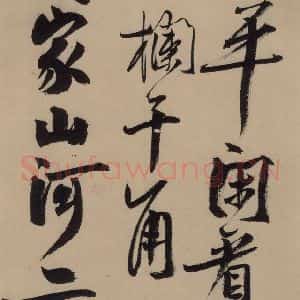 平閑着
欄干角
家山河二
Shufawang.CN